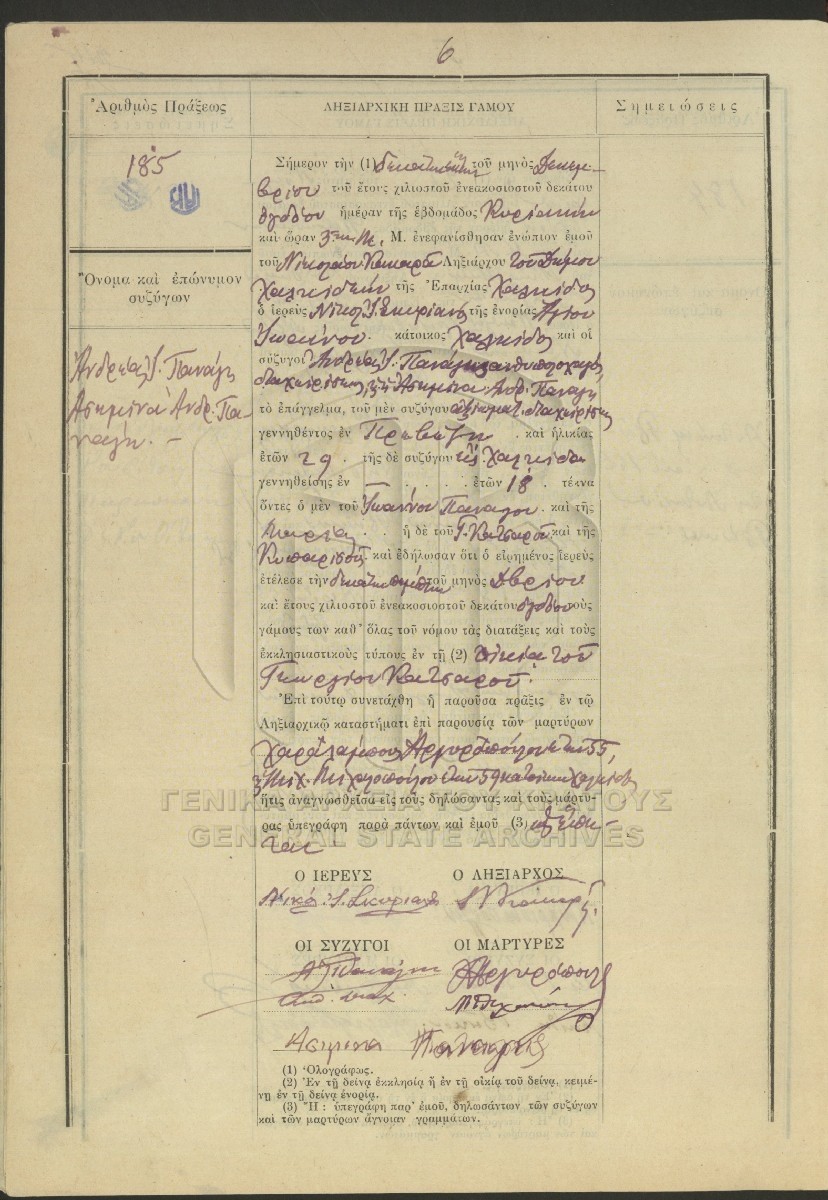 6
Ἀριθμὸς Πράξεως
185
Ὄνομα καὶ ἐπώνυμον
συζύγων
Ἀνδρέας Ι. Πανάγη
Ἀσημίνα Ἀνδρ. Πα-
νάγη. –
ΛΗΞΙΑΡΧΙΚΗ ΠΡΑΞΙΣ ΓΑΜΟΥ
Σήμερον τὴν (1) τοῦ μηνὸς Δεκεμ-
βρίου τοῦ ἔτους χιλιοστοῦ ἐνεακοσιοστοῦ δεκάτου
ὀγδόου ἡμέραν τῆς ἑβδομάδος Κυριακὴν
καὶ ὥραν 3ην Μ. Μ. ἐνεφανίσθησαν ἐνώπιον ἐμοῦ
τοῦ Νικολάου Ληξιάρχου τοῦ Δήμου
Χαλκιδέων τῆς Ἐπαρχίας Χαλκίδος
ὁ ἱερεὺς Νικόλ. Ι. Σκυριανὸς τῆς ἐνορίας Ἁγίου
Ἰωάννου. κάτοικος Χαλκίδος καὶ οἱ
σύζυγοι Ἀνδρέας Ι. Πανάγη ἀνθυπολοχαγὸς
διαχειρίσεως, καὶ Ἀσημίνα Ἀνδρ. Παναγῆ
τὸ ἐπάγγελμα, τοῦ μὲν συζύγου ἀξιωματ. διαχειρίσεως
γεννηθέντος ἐν Πρεβέζῃ . καὶ ἡλικίας
ἐτῶν 29 . τῆς δὲ συζύγου ἐν Χαλκίδι
γεννηθείσης ἐν – . . . . ἐτῶν 18 . τέκνα
ὄντες ὁ μὲν τοῦ Ἰωάννου Πανάγου . καὶ τῆς
Μαρίας . . ἡ δὲ τοῦ Γ. Κατσαροῦ καὶ τῆς
Κυπαρισσ. καὶ ἐδήλωσαν ὅτι ὁ εἰρημένος ἱερεὺς
ἐτέλεσε τὴν δεκάτην πέμπτην τοῦ μηνὸς Δβρίου
καὶ ἔτους χιλιοστοῦ ἐνεακοσιοστοῦ δεκάτου ὀγδόου τοὺς
γάμους των καθ' ὅλας τοῦ νόμου τὰς διατάξεις καὶ τοὺς
ἐκκλησιαστικοὺς τύπους ἐν τῇ (2) οἰκίᾳ τοῦ
Γεωργίου Κατσαροῦ.
Ἐπὶ τούτῳ συνετάχθη ἡ παροῦσα πρᾶξις ἐν τῷ
Ληξιαρχικῷ καταστήματι ἐπὶ παρουσίᾳ τῶν μαρτύρων
Χαραλάμπους Ἀργυροπούλου ἐτῶν 55,
Μιχ. Μιχαλοπούλου ἐτῶν 59 κατοίκων Χαλκίδος
ἥτις ἀναγνωσθεῖσα εἰς τοὺς δηλώσαντας καὶ τοὺς μάρτυ-
ρας ὑπεγράφη παρὰ πάντων καὶ ἐμοῦ (3)
ΓΕΝΙΚΑ ΑΡΧΕΙΑ ΤΟΥ ΚΡΑΤΟΥΣ
GENERAL STATE ARCHIVES
Ο ΙΕΡΕΥΣ Ο ΛΗΞΙΑΡΧΟΣ
Νικό. Ι. Σκυριανὸς
ΟΙ ΣΥΖΥΓΟΙ ΟΙ ΜΑΡΤΥΡΕΣ
Α Ι Παναγης Χ Αργυρόπουλ
Ασημινα Παναγη
(1) Ὁλογράφως.
(2) Ἐν τῇ δεῖνα ἐκκλησίᾳ ἢ ἐν τῇ οἰκίᾳ τοῦ δεῖνα, κειμέ-
νῃ ἐν τῇ δεῖνα ἐνορίᾳ.
(3) Ἢ : ὑπεγράφη παρ' ἐμοῦ, δηλωσάντων τῶν συζύγων
καὶ τῶν μαρτύρων ἄγνοιαν γραμμάτων.
Σημειώσεις